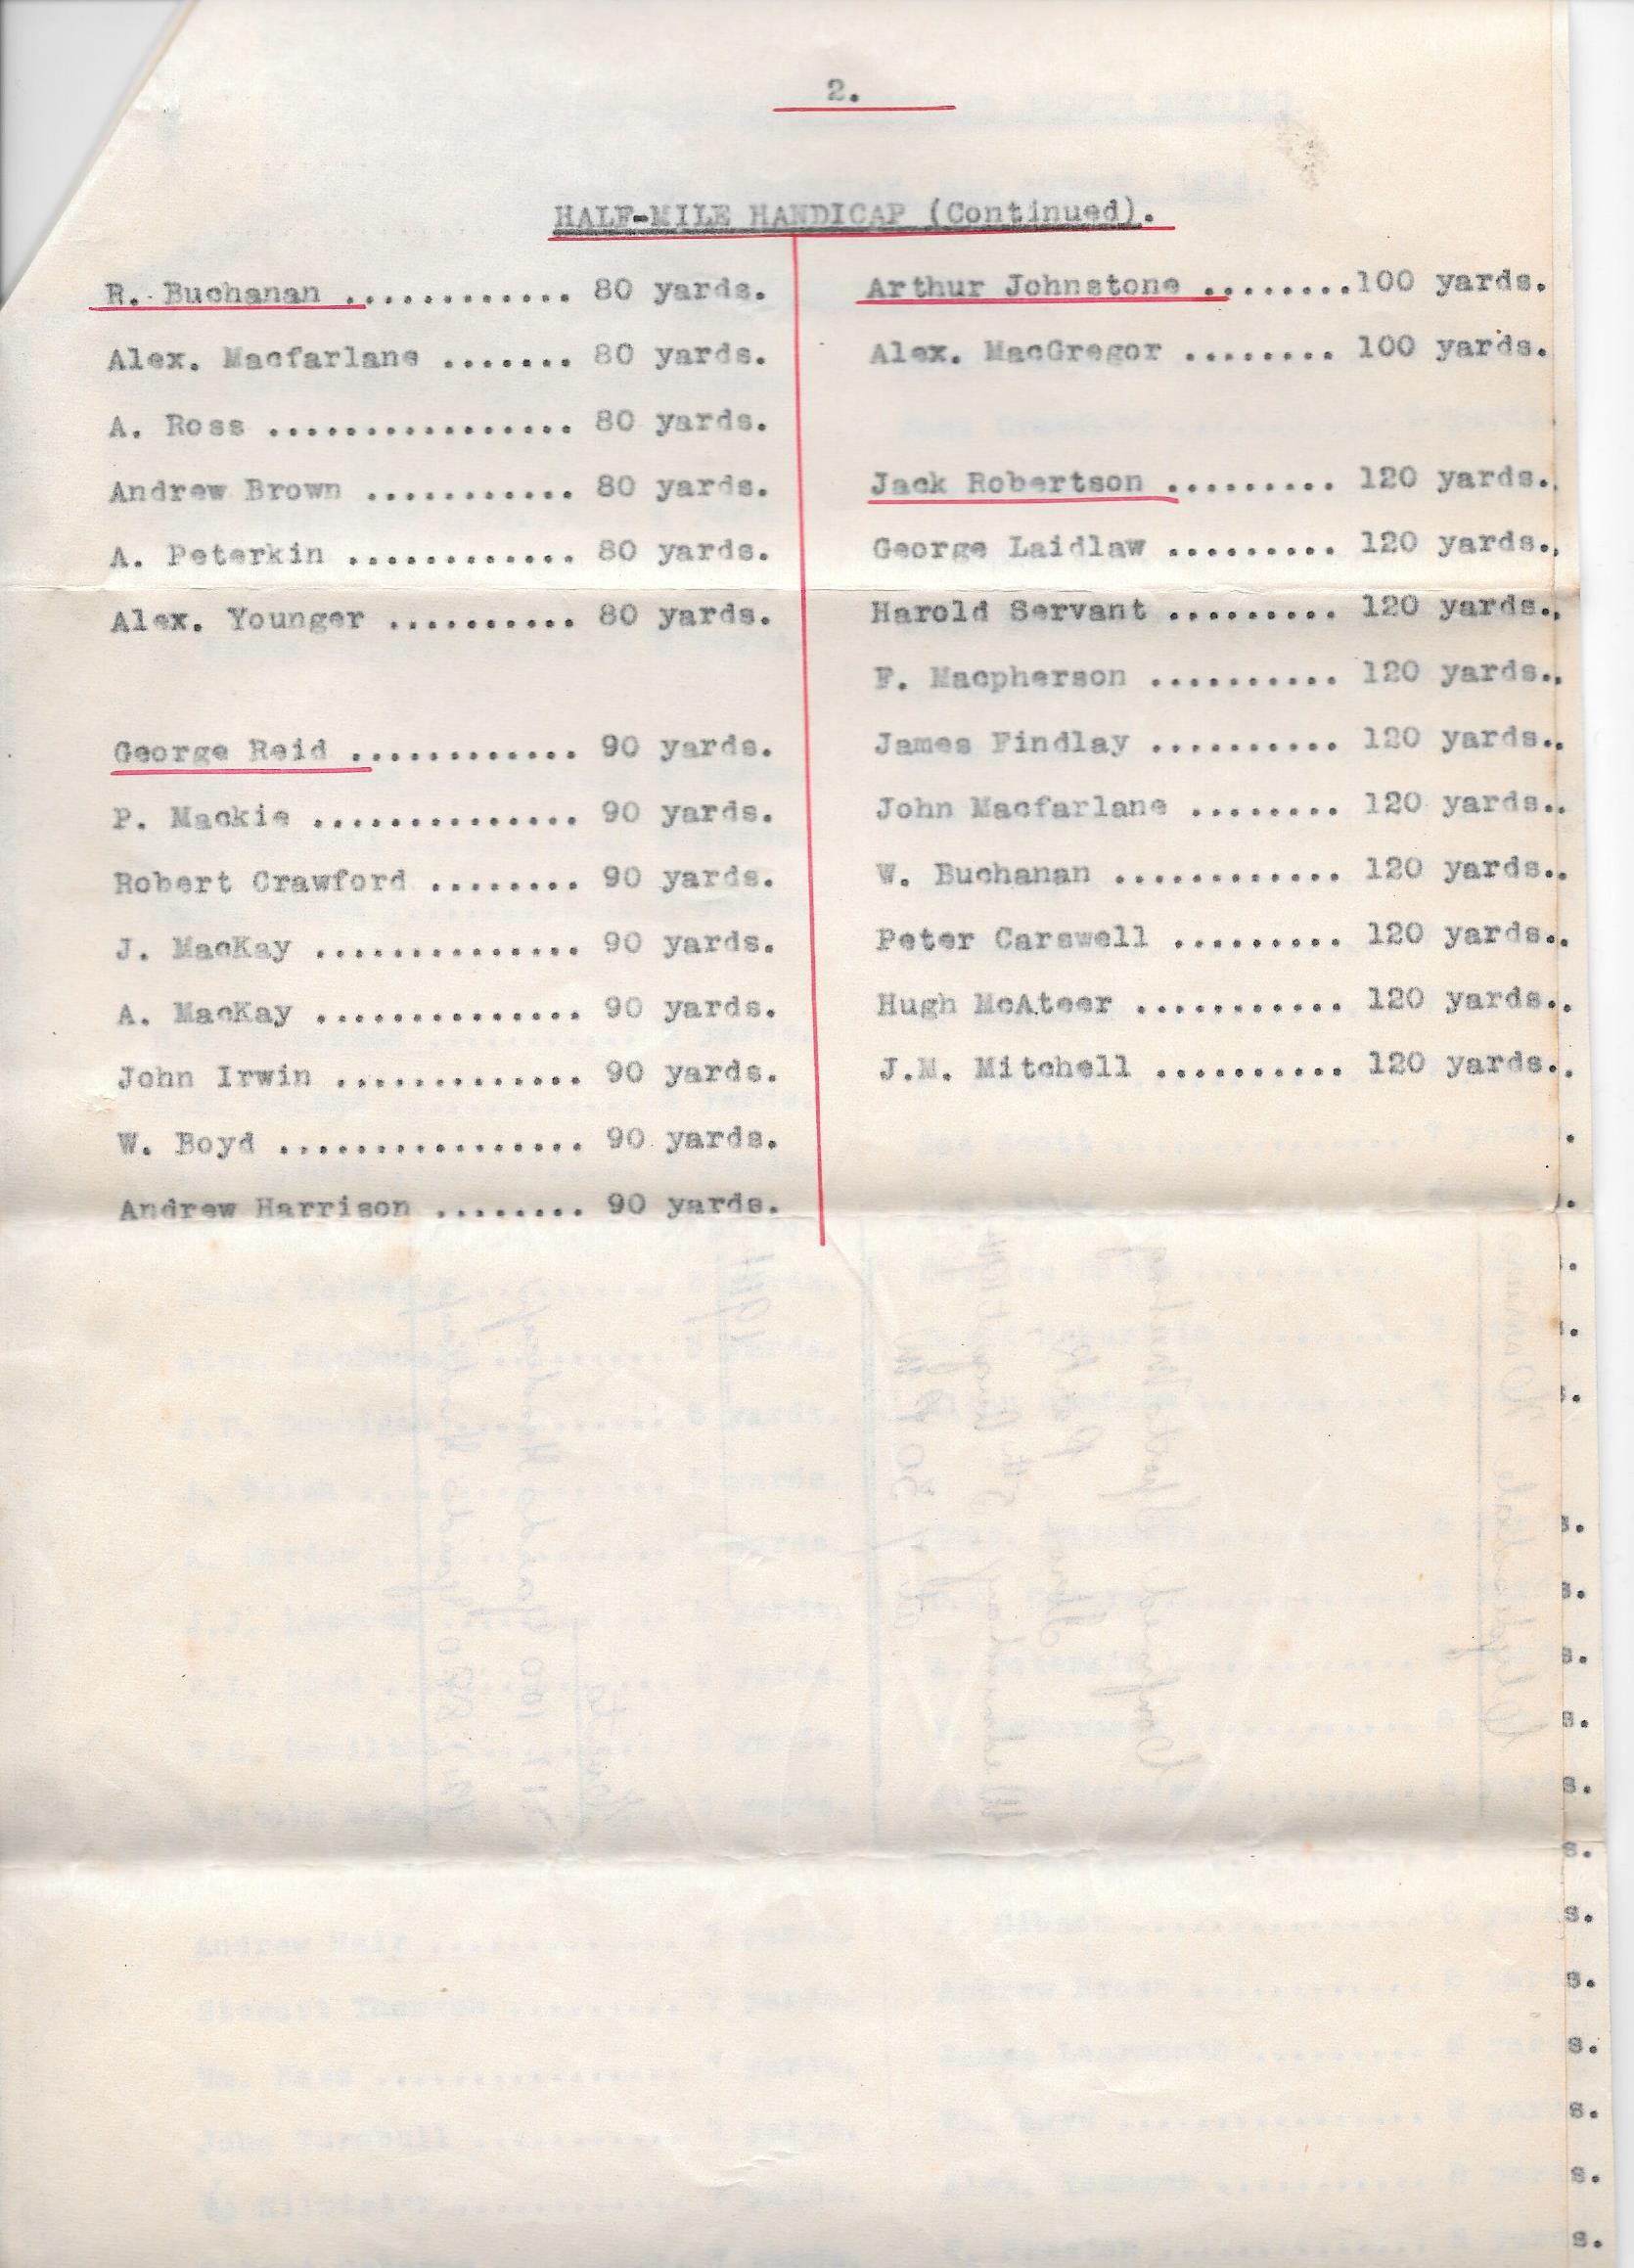 2.
HALF-MILE HANDICAP (Continued).
R. Buchanan ............ 80 yards.
Alex. Macfarlane ....... 80 yards.
A. Ross ................ 80 yards.
Andrew Brown ........... 80 yards.
A. Peterkin ............ 80 yards.
Alex. Younger .......... 80 yards.
George Reid ............ 90 yards.
P. Mackie .............. 90 yards.
Robert Crawford ........ 90 yards.
J. MacKay .............. 90 yards.
A. MacKay .............. 90 yards.
John Irwin ............. 90 yards.
W. Boyd ................ 90 yards.
Andrew Harrison ........ 90 yards.
Arthur Johnstone ........100 yards.
Alex. MacGregor ........ 100 yards.
Jack Robertson ......... 120 yards.
George Laidlaw ......... 120 yards.
Harold Servant ......... 120 yards.
F. Macpherson .......... 120 yards.
James Findlay .......... 120 yards.
John Macfarlane ........ 120 yards.
W. Buchanan ............ 120 yards.
Peter Carswell ......... 120 yards.
Hugh McAteer ........... 120 yards.
J.M. Mitchell .......... 120 yards.